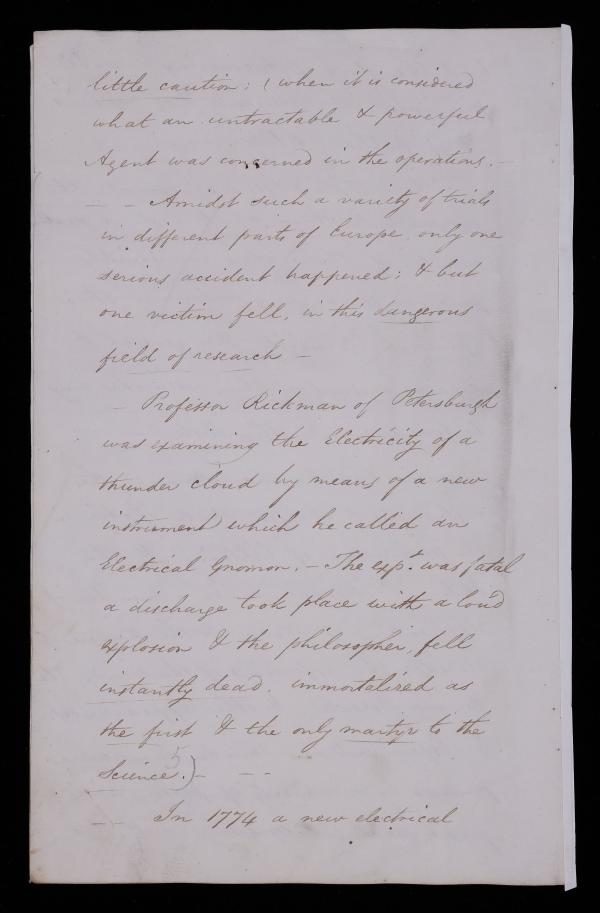 little caution; (when it is considered
what an untractable & powerful
Agent was concerned in the operations. –
– – Amidst such a variety of trials
in different parts of Europe only one
serious accident happened; & but
one victim fell, in this dangerous
field of research –
– Professor Rickman of Petersburgh
was examining the Electricity of a
thunder cloud by means of a new
instrument which he called an
Electrical Gnomon. – The expt. was fatal
a discharge took place with a loud
explosion & the philosopher, fell
instantly dead. immortalized as
the first & the only martyr to the
5
Science.) – – –
– – In 1774 a new electrical